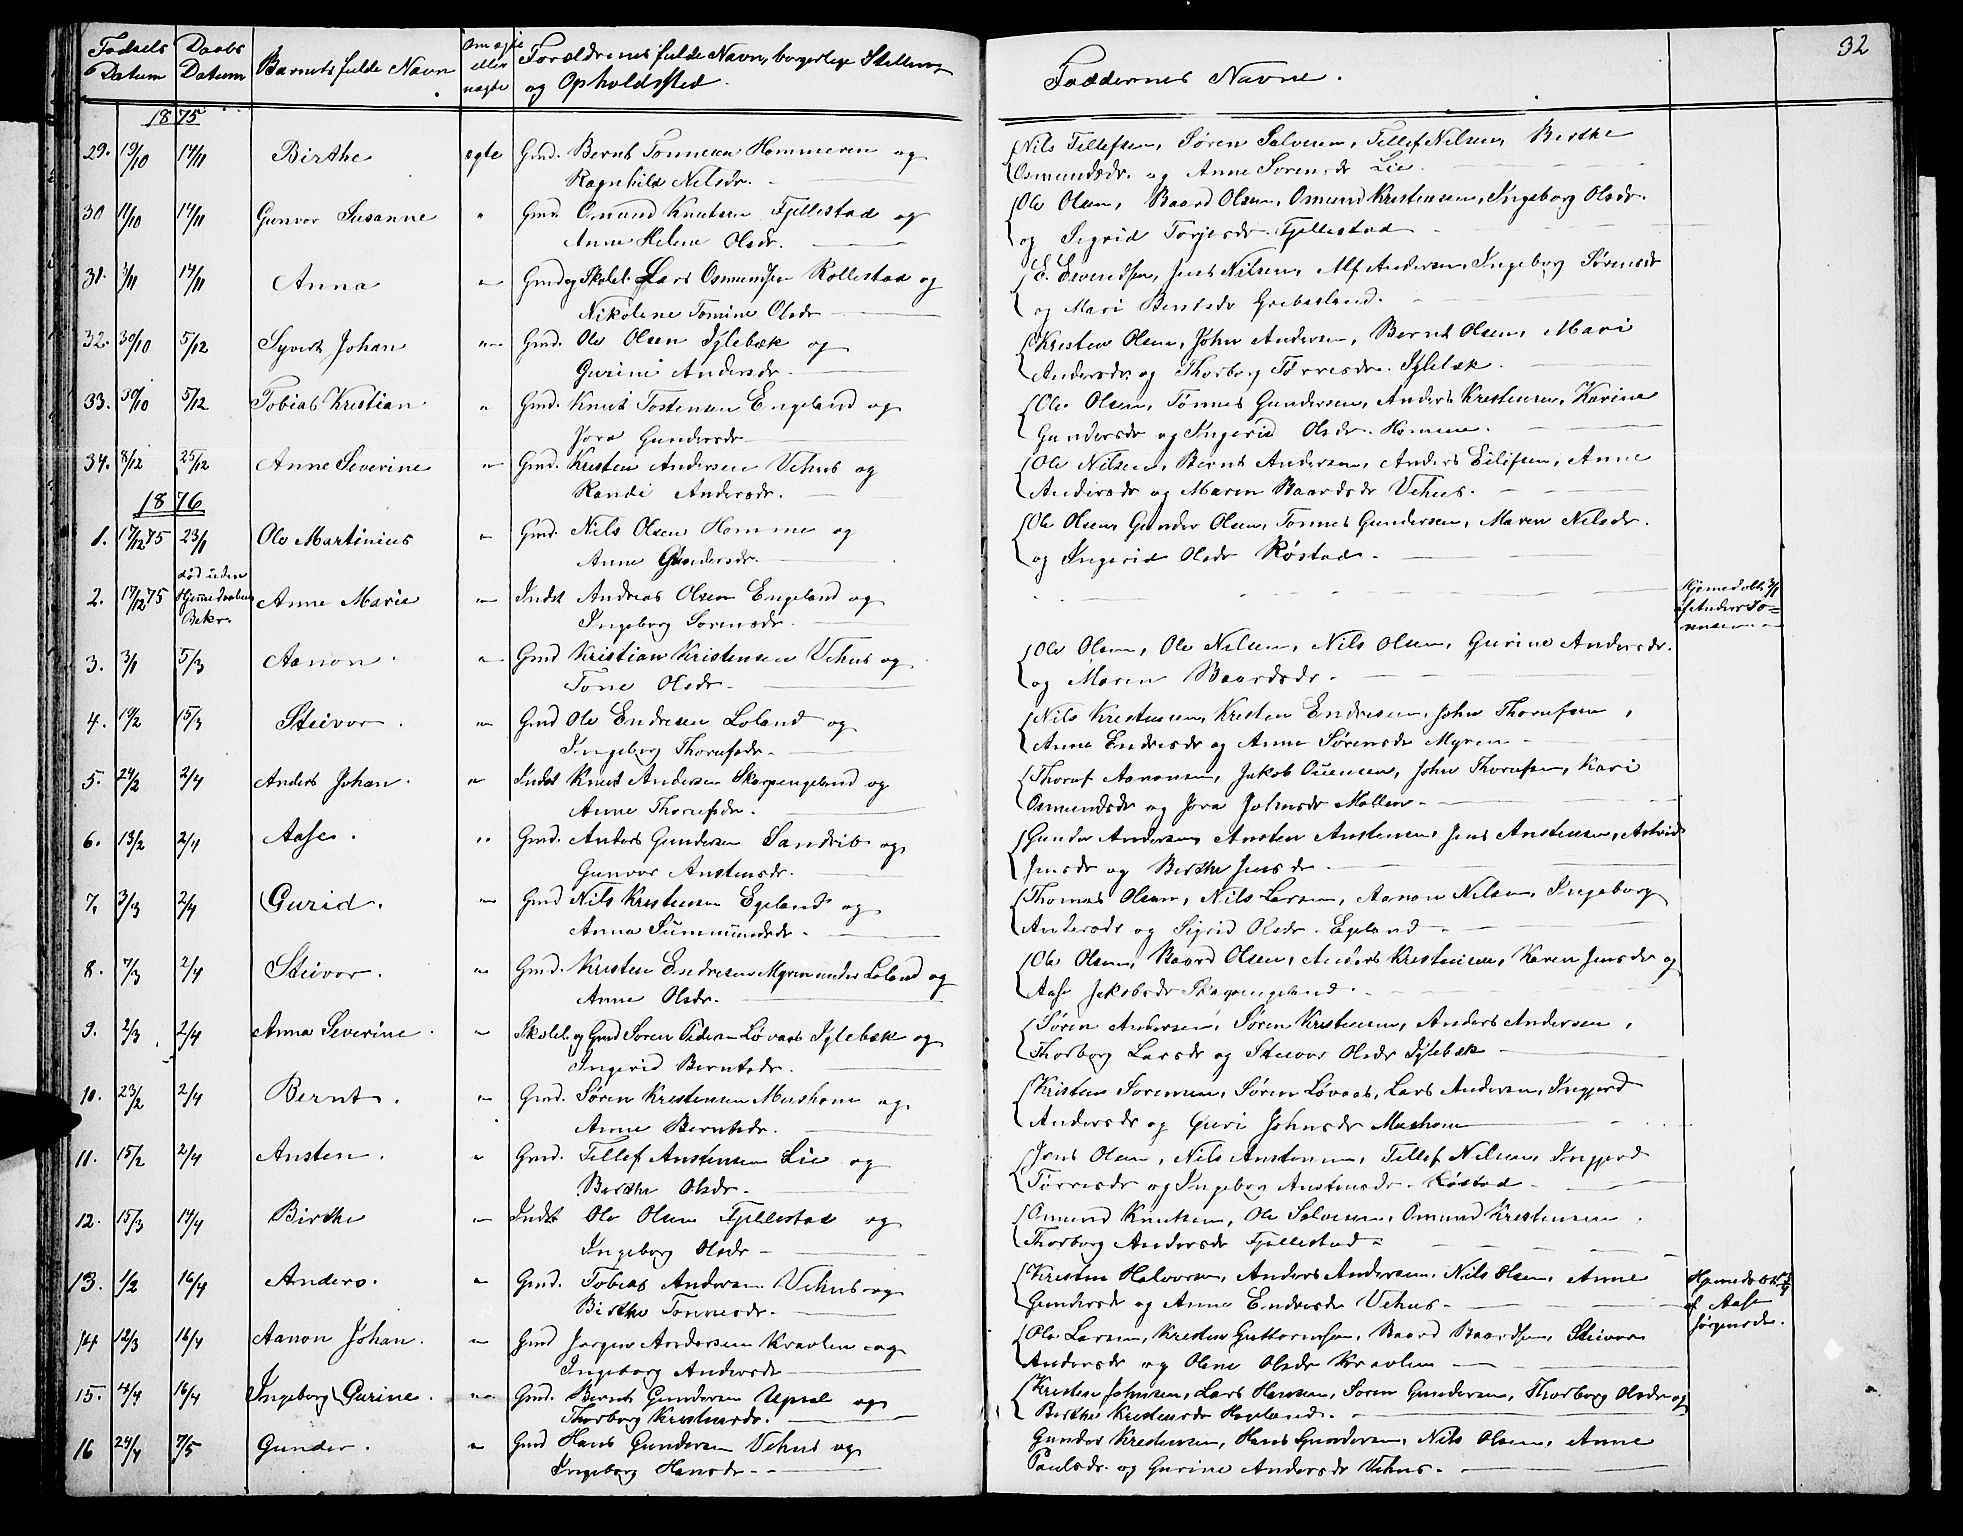 32
Fødsels Datum | Daabs Datum | Barnets fulde Navn | Om ægte eller uægte | Forældrenes fulde Navn, borgerlige Stilling og Opholdssted. | Faddernes Navne.
1875
29. 19/10 14/11 Birthe ægte Gmd. Bernt Tønnesen Hommeren og | Nils Tellefsen, Søren Salvesen, Tellef Nilsen, Birthe
Ragnhild Nilsdr. | Osmundsdr. og Anne Sørensdr Lie.
30 11/10 14/11 Gunvor Susanne " Gmd. Omund Knutsen Fjellestad og | Ole Olsen, Baard Olsen, Omund Kristensen, Ingeborg Olsdr.
Anne Helene Olsdr. | og Sigrid Torjesdr. Fjellestad
31. 1/11 14/11 Anna " Gmd og Skolel. Lars Osmundsen Rollestad og | E. Evendsen, Jens Nilsen, Alf Andersen, Ingeborg Sørensdr
Nikolene Tomine Olsdr | og Mari Berntsdr Grebesland.
32. 30/10 5/12 Syvert Johan " Gmd. Ole Olsen Iglebæk og | Kristen Olsen, John Andersen, Bernt Olsen, Mari
Gurine Andersdr. | Andersdr. og Thorborg Tørresdr. Iglebæk.
33. 30/10 5/12 Tobias Kristian " Gmd. Knut Tostensen Engeland og | Ole Olsen, Tønnes Gundersen, Anders Kristensen, Karine
Jora Gundersdr. | Gundersdr og Ingerid Olsdr. Homme.
34. 8/12 25/12 Anne Severine " Gmd. Kristen Andersen Vehus og | Ole Nilsen, Bernt Andersen, Anders Eilifsen, Anne
Randi Andersdr. | Andersdr og Maren Baardsdr Vehus.
1876
1. 17/12 75 23/1 Ole Martinius " Gmd. Nils Olsen Homme og | Ole Olsen, Gunder Olsen, Tønnes Gundersen, Maren Nilsdr.
Anne Gundersdr. | og Ingerid Olsdr Røstad.
2. 17/12 75 død uden Hjemmedaabens Bekr. Anne Marie " Indst Andreas Olsen Engeland og | Hjemmedøbt 3/1 af Anders Sørensen
Ingeborg Sørensdr.
3. 3/1 5/3 Aanon. " Gmd Kristian Kristensen Vehus og | Ole Olsen, Ole Nilsen, Nils Olsen, Gurine Andersdr.
Tone Olsdr. | og Maren Baardsdr.
4. 19/2 15/3 Steivor. " Gmd Ole Endresen Loland og | Nils Kristensen, Kristen Endresen, John Thorufsen,
Ingeborg Thorufsdr. | Anne Endresdr og Anne Sørensdr Myren
5. 24/2 2/4 Anders Johan. " Indst Knut Andersen Skarpengeland og | Thoruf Aanonsen, Jakob Ouensen, John Thorufsen, Kari
Anne Thorufsdr. | Osmundsdr og Jora Johnsdr Mollen
6. 13/2 2/4 Aase. " Gmd. Anders Gundersen Sandrib og | Gunder Andersen, Ansten Anstensen, Jens Anstensen, Astrid
Gunvor Anstensdr. | Jensdr og Birthe Jensdr.
7. 3/3 2/4 Gurid. " Gmd Nils Kristensen Egeland og | Thomas Olsen, Nils Larsen, Aanon Nilsen, Ingeborg
Anna Summundsdr. | Andersdr og Sigrid Olsdr. Egeland
8. 7/3 2/4 Steivor. " Gmd. Kristen Endresen Myren under Loland og | Ole Olsen, Baard Olsen, Anders Kristensen, Karen Jensdr og
Anne Olsdr. | Aase Jakobsdr Skarpengeland.
9. 2/3 2/4 Anna Severine. " Skolel. og Gmd Søren Pedersen Løvaas Iglebæk og | Søren Andersen, Søren Kristensen, Anders Andersen,
Ingerid Berntsdr. | Thorborg Larsdr og Steivor Olsdr Iglebæk
10. 23/2 2/4 Bernt. " Gmd. Søren Kristensen Mushom og | Kristen Sørensen, Søren Løvaas, Lars Andersen, Ingjerd
Anne Berntsdr. | Andersdr og Guri Johnsdr Mushom
11. 15/2 2/4 Ansten. " Gmd. Tellef Anstensen Lie og | Jens Olsen, Nils Anstensen, Tellef Nilsen, Ingjerd
Birthe Olsdr. | Tørresdr og Ingeborg Anstensdr. Røstad
12. 15/3 14/4 Birthe " Indst Ole Olsen Fjellestad og | Omund Knutsen, Ole Salvesen, Omund Kristensen,
Ingeborg Olsdr | Thorborg Andersdr Fjellestad
13. 1/2 16/4 Anders. " Gmd. Tobias Andersen Vehus og | Kristen Halvorsen, Anders Andersen, Nils Olsen, Anne | Hjemmedøbt
Birthe Tønnesdr. | Gundersdr og Anne Endresdr Vehus. | af Aase Jørgensdr.
14 12/3 16/4 Aanon Johan. " Gmd Jørgen Andersen Kravlen og | Ole Larsen, Kristen Guttormsen, Baard Baardsen, Steivor
Ingeborg Andersdr | Andersdr og Olene Olsdr Kravlen
15. 4/4 16/4 Ingeborg Gurine. " Gmd. Bernt Gundersen Upsal og | Kristen Johnsen, Lars Hansen, Søren Gundersen, Thorborg Olsdr og
Thorborg Kristensdr. | Birthe Kristensdr Hageland.
16 24/4 7/5 Gunder. " Gmd Hans Gundersen Vehus og | Gunder Kristensen, Hans Gundersen, Nils Olsen, Anne
Ingeborg Hansdr | Paulsdr. og Gurine Andersdr Vehus.